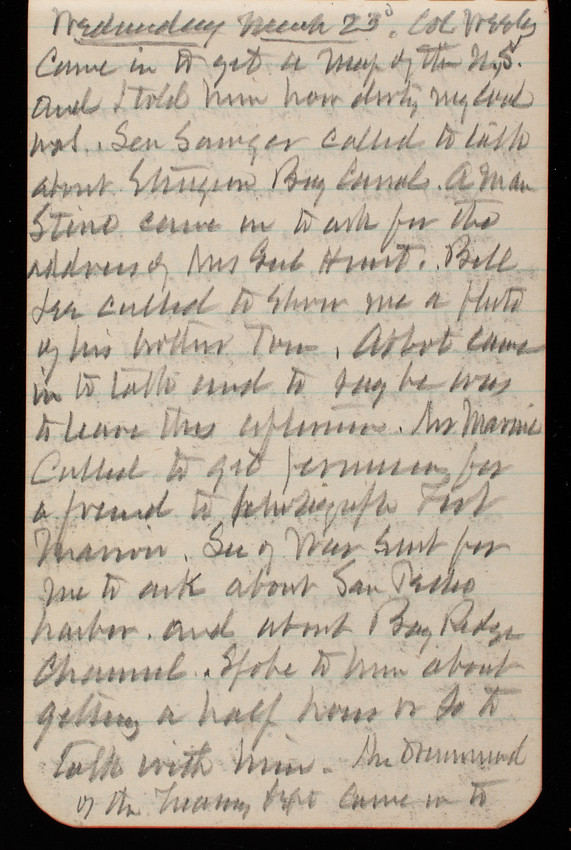 Wednesday March 23d. Col
came in to get a map of the U.S.
and I told him how dirty my coal
was. Sen Sawyer called to talk
about Sturgeon Bay Canal. A Man
Stine came in to ask for the
address of Mrs Hunt. Bill
Lee called to show me a photo
of his brother Tom. Abbot came
in to talk and to say he was
to leave this afternoon. Mr
Called to get permission for
a friend to photograph Fort
Marion. Sec of War sent for
me to ask about San Pedro
harbor. and about Bay Ridge
Channel. Spoke to him about
getting a half hour or so to
talk with him. Mr Drummond
of the Treasury Dept came in to